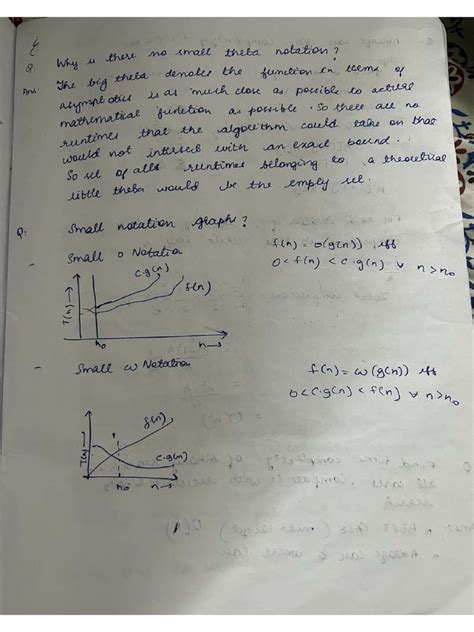 Q. Why is there no small theta notation?
Ans: The big theta denotes the function in terms of
asymptotics is as much close as possible to actual
mathematical function as possible. So there are no
runtimes that the algorithm could take on that
would not intersect with an exact bound.
So set of all runtimes belonging to a theoretical
little theta would be the empty set.
Q: Small notation graph?
- Small o Notation
f(n) = o(g(n)) iff
0 < f(n) < c.g(n) ∀ n > n₀
c.g(n)
f(n)
T(n) →
n₀
n →
- Small ω Notation
f(n) = ω(g(n)) iff
0 < c.g(n) < f(n) ∀ n > n₀
f(n)
c.g(n)
T(n) →
n₀
n →